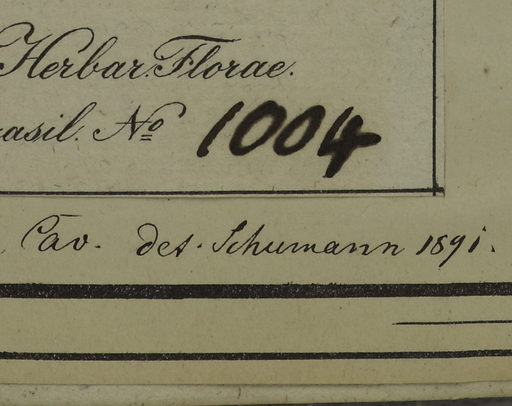 Herbar. Florae.
asil. Nº 1004
Cav. det. Schumann 1891.